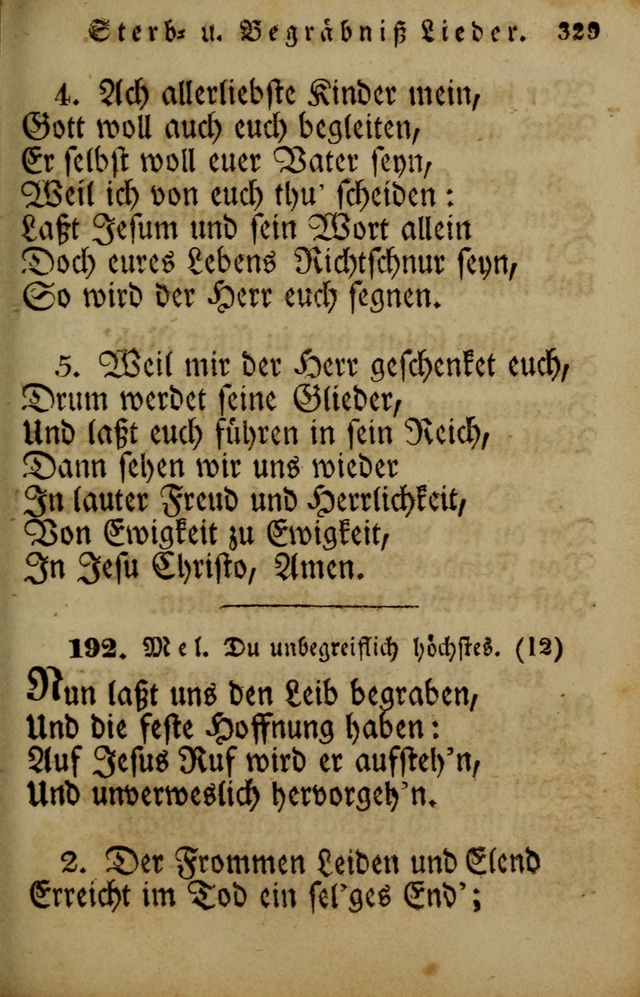 Sterb- u. Begräbniß Lieder. 329
4. Ach allerliebste Kinder mein,
Gott woll auch euch begleiten,
Er selbst woll euer Vater seyn,
Weil ich von euch thu' scheiden:
Laßt Jesum und sein Wort allein
Doch eures Lebens Richtschnur seyn,
So wird der Herr euch segnen.
5. Weil mir der Herr geschenket euch,
Drum werdet seine Glieder,
Und laßt euch führen in sein Reich,
Dann sehen wir uns wieder
In lauter Freud und Herrlichkeit,
Von Ewigkeit zu Ewigkeit,
In Jesu Christo, Amen.
192. Mel. Du unbegreiflich höchstes. (12)
Nun laßt uns den Leib begraben,
Und die feste Hoffnung haben:
Auf Jesus Ruf wird er aufsteh'n,
Und unverweslich hervorgeh'n.
2. Der Frommen Leiden und Elend
Erreicht im Tod ein sel'ges End';